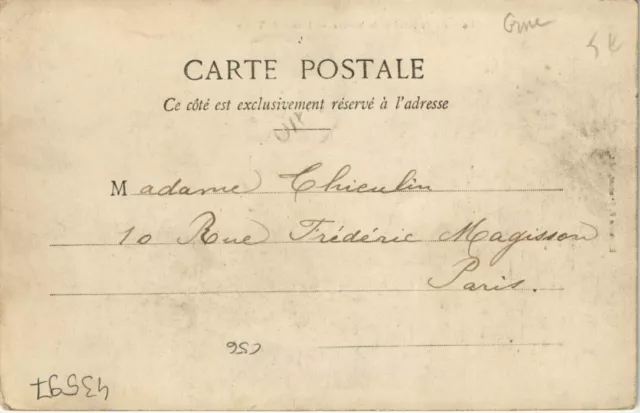 Orne
CARTE POSTALE
Ce côté est exclusivement réservé à l'adresse
Madame Thieulin
10 Rue Frédéric Magisson
Paris.
43597